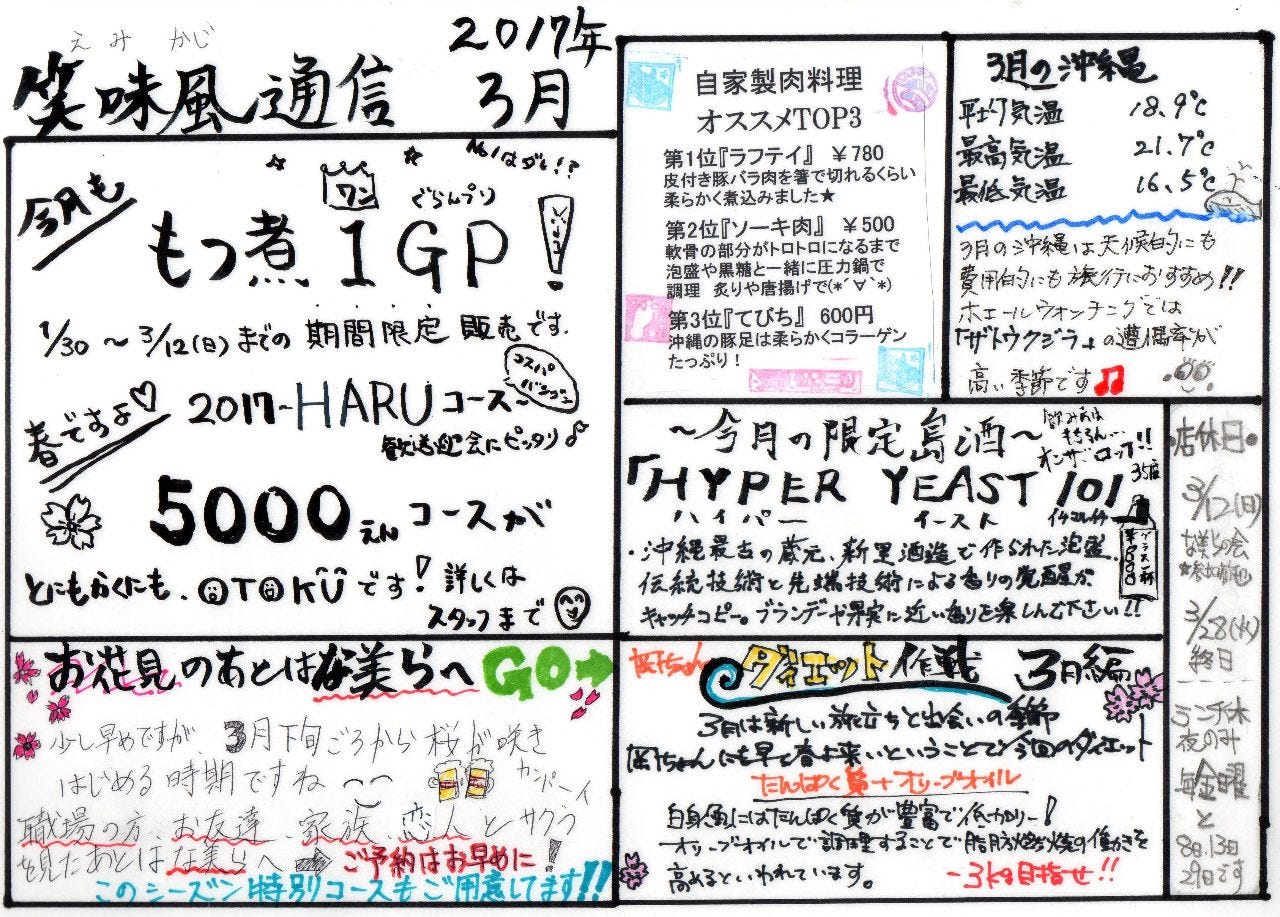 えみ かじ
笑味風通信
2017年
3月
No.1はダレ!?
今月も
ワン
ぐらんぷり
もつ煮 1 GP!
1/30 ～ 3/12(日)までの 期間限定 販売です.
春ですよ♡
2017-HARUコース-
コスパ
バツグン
歓送迎会にピッタリ♪
5000えん コースが
とにもかくにも、OTOKUです! 詳しくは
スタッフまで
自家製肉料理
オススメTOP3
第1位『ラフテイ』 ￥780
皮付き豚バラ肉を箸で切れるくらい
柔らかく煮込みました★
第2位『ソーキ肉』 ￥500
軟骨の部分がトロトロになるまで
泡盛や黒糖と一緒に圧力鍋で
調理 炙りや唐揚げで(*´∀`*)
第3位『てびち』 600円
沖縄の豚足は柔らかくコラーゲン
たっぷり！
3月の沖縄
平均気温 18.9℃
最高気温 21.7℃
最低気温 16.5℃
3月の沖縄は天候的にも
費用的にも旅行におすすめ!!
ホエールウォッチングでは
「ザトウクジラ」の遭遇率が
高い季節です♫
～今月の限定島酒～
飲み方は
もちろん…
オンザロック!!
「HYPER YEAST 101
35度
ハイパー イースト イチマルイチ
グラス一杯
￥600
・沖縄最古の蔵元、新里酒造で作られた泡盛.
伝統技術と先端技術による香りの覚醒が
キャッチコピー。ブランデーや果実に近い香りを楽しんで下さい!!
店休日
3/12(日)
な美らの会
★参加者募
3/28(火)
終日
ランチ休
夜のみ
毎金曜
と
8日.13日
29日です
お花見のあとはな美らへGO➡
少し早めですが、3月下旬ごろから桜が咲き
はじめる時期ですね～～
カンパーイ
職場の方、お友達、家族、恋人とサクラ
を見たあとはな美らへ ➡ ご予約はお早めに!
このシーズン特別コースもご用意してます!!
岡ちゃん
ダイエット作戦 3月編
3月は新しい旅立ちと出会いの季節
岡ちゃんにも早く春よ来いということで今回のダイエット
たんぱく質＋オリーブオイル
白身魚にはたんぱく質が豊富で低カロリー!
オリーブオイルで調理することで脂肪燃焼の働きを
高めるといわれています。
-3kg目指せ!!